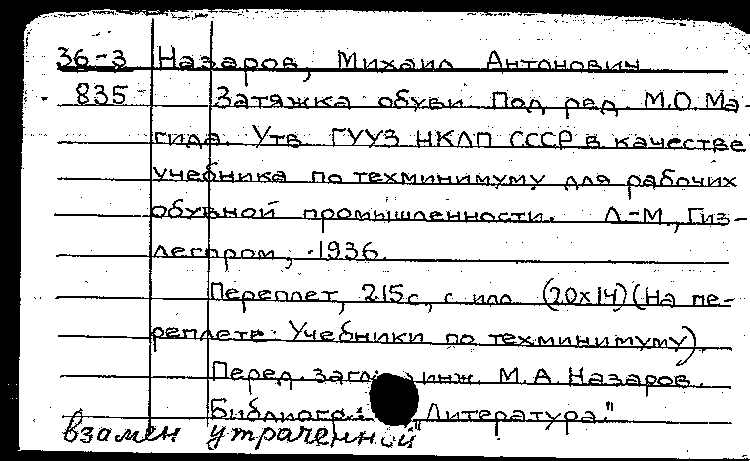 36-3 Назаров, Михаил Антонович
835 Затяжка обуви. Под ред. М.О. Ма-
гида. Утв. ГУУЗ НКЛП СССР в качестве
учебника по техминимуму для рабочих
обувной промышленности. Л.-М., Гиз-
легпром, 1936.
Переплет, 215с., с илл. (20х14) (На пе-
реплете: Учебники по техминимуму).
Перед загл. инж. М.А. Назаров.
Библиогр.: "Литература."
взамен утраченной"